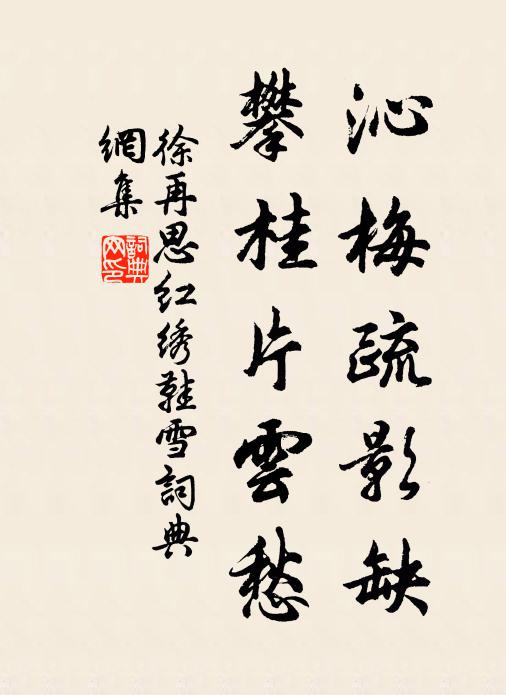 沁梅疏影缺
攀桂片雲愁
徐再思红绣鞋雪詞典
網集
詞典網印